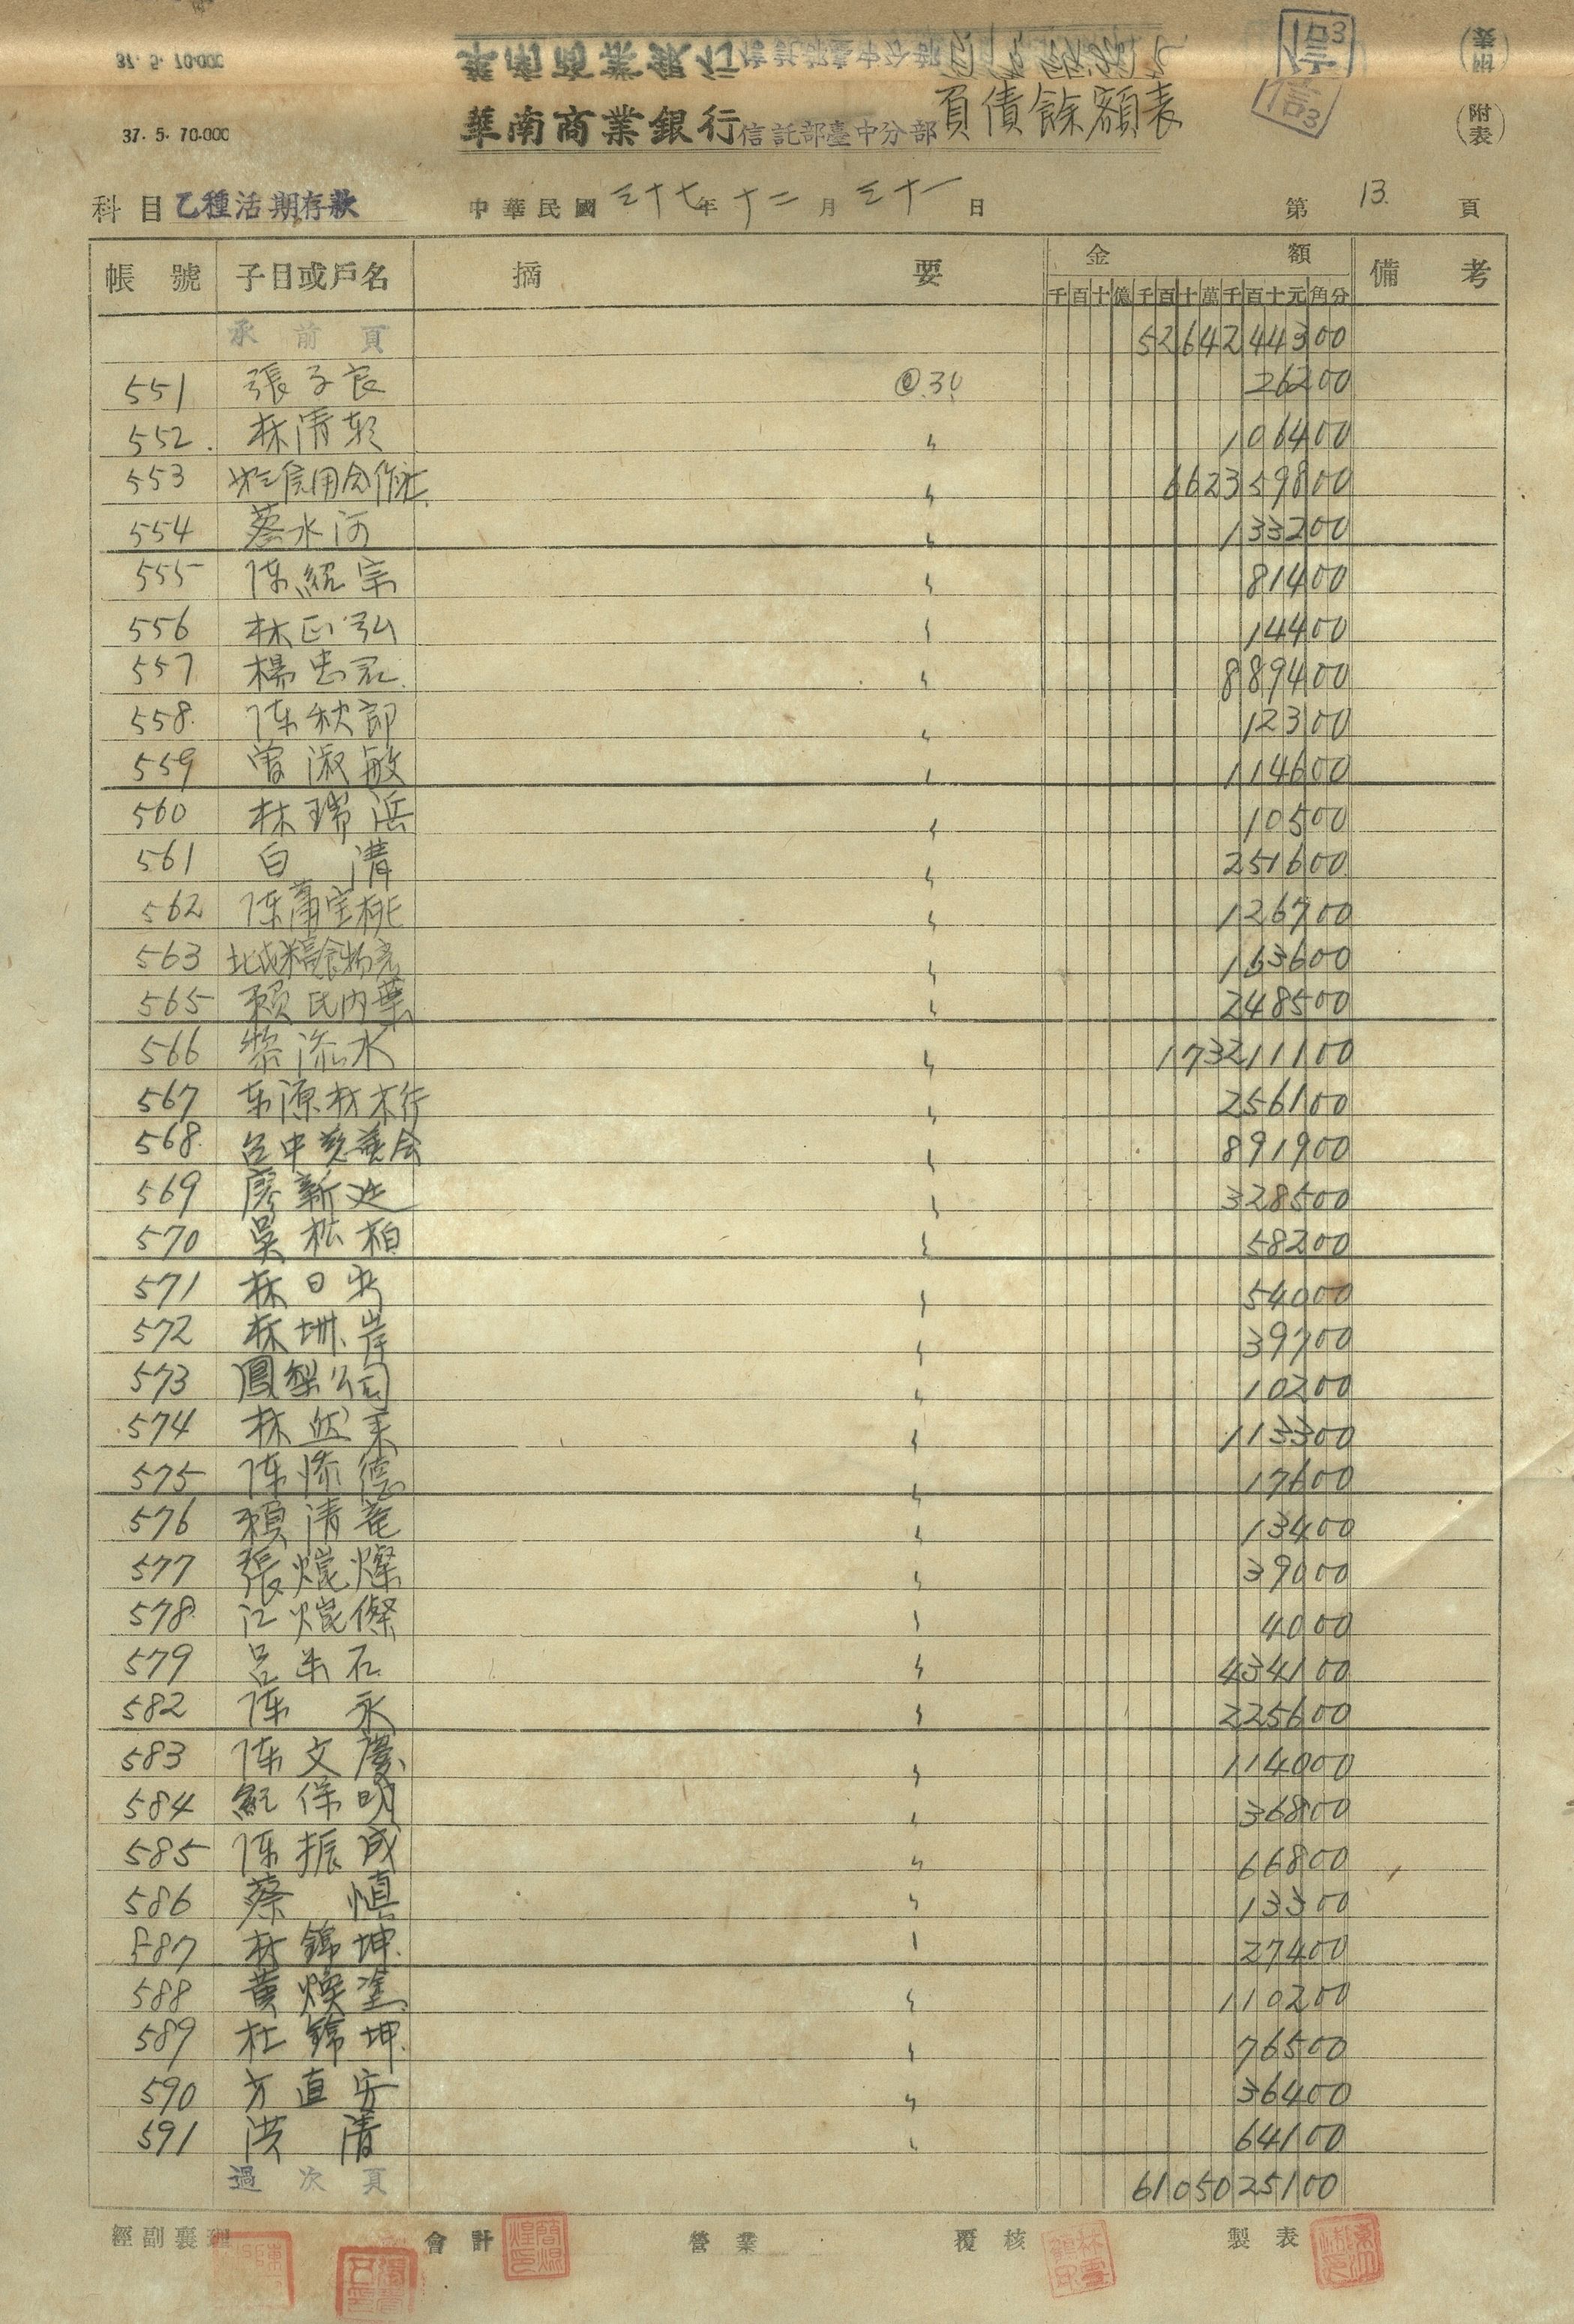 37. 5. 70.000
華南商業銀行信託部臺中分部 負債餘額表 (附表)
信3
科目 乙種活期存款 中華民國 三十七年 十二月 三十一日 第 13. 頁
帳號 子目或戶名 摘要 金額 備考
千百十億千百十萬千百十元角分
承前頁 5264244300
551 張子良 @30 26200
552. 林清 〃 106400
553 信用合作社 〃 662359800
554 蔡水河 〃 133200
555 陳紹宗 〃 81400
556 林正弘 〃 14400
557 楊忠 〃 889400
558. 陳秋郎 〃 12300
559 曾淑敏 〃 114600
560 林瑞浜 〃 10500
561 白清 〃 251600
562 陳蕭宝桃 〃 126700
563 北 163600
565 賴氏內葉 〃 248500
566 黎添水 〃 173211100
567 東源材木行 〃 256100
568. 台中慈善会 〃 891900
569 廖新 〃 328500
570 吳松柏 〃 58200
571 林日 〃 54000
572 林圳岸 〃 39700
573 鳳梨公司 〃 10200
574 林 〃 113300
575 陳添德 〃 17600
576 賴清菴 〃 13400
577 張焜燦 〃 39000
578. 江焜傑 〃 4000
579 呂朱石 〃 434100
582 陳永 〃 225600
583 陳文慶 〃 114000
584 紀保明 〃 36800
585 陳振成 〃 66800
586 蔡慎 〃 13300
587 林錦坤 〃 27400
588 黃煥塗 〃 110200
589 杜錦坤 〃 76500
590 方直安 〃 36400
591 洪清 〃 64100
過次頁 6105025100
經副襄理 會計 營業 覆核 製表